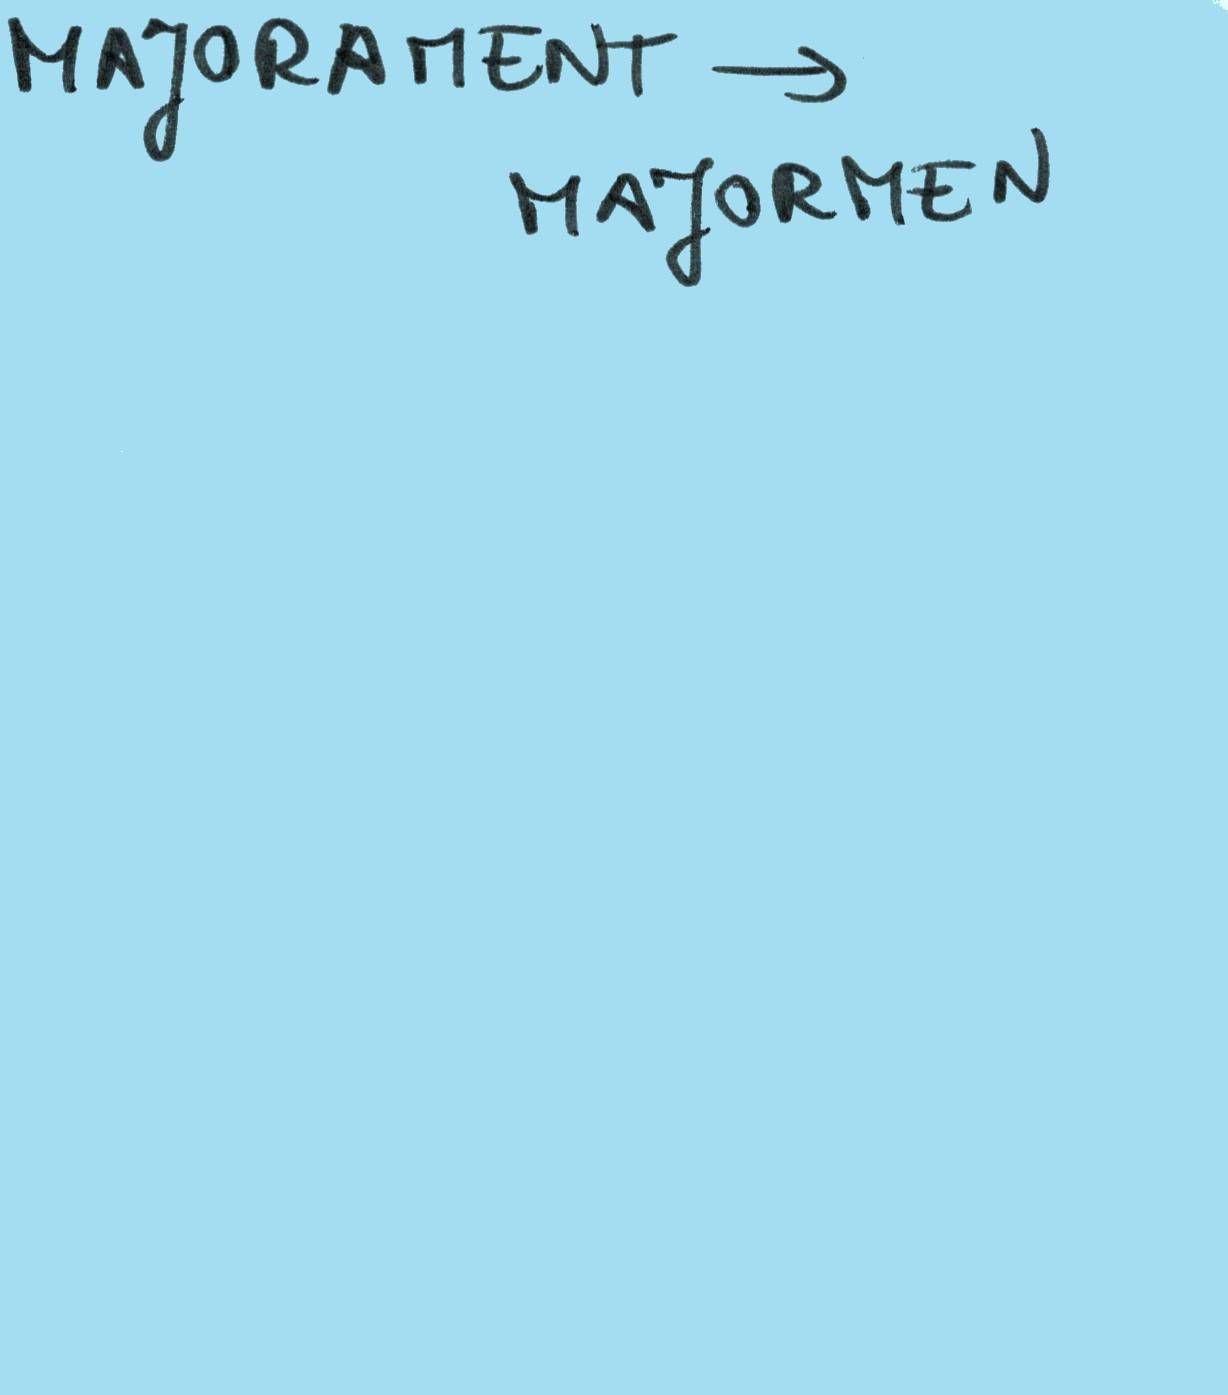 MAJORAMENT →
MAJORMEN